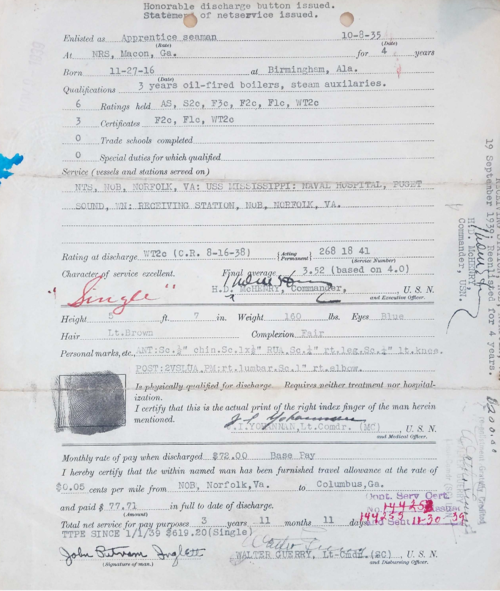 Honorable discharge button issued.
Statement of netservice issued.
Enlisted as Apprentice seaman 10-8-35
(Rate) (Date)
At NRS, Macon, Ga. for 4 years
Born 11-27-16 at Birmingham, Ala.
(Date)
Qualifications 3 years oil-fired boilers, steam auxilaries.
6 Ratings held AS, S2c, F3c, F2c, F1c, WT2c
3 Certificates F2c, F1c, WT2c
0 Trade schools completed
0 Special duties for which qualified
Service (vessels and stations served on)
NTS, NOB, NORFOLK, VA: USS MISSISSIPPI: NAVAL HOSPITAL, PUGET
SOUND, WN: RECEIVING STATION, NOB, NORFOLK, VA.
Rating at discharge WT2c (C.R. 8-16-38) Acting Permanent 268 18 41
(Service Number)
Character of service excellent. Final average 3.52 (based on 4.0)
"Single" McHENRY, Commander, U. S. N.
and Executive Officer.
Height 5 ft. 7 in. Weight 160 lbs. Eyes Blue
Hair Lt.Brown Complexion Fair
Personal marks, etc. ANT:Sc.½" chin.Sc.1x½" RUA.Sc.½" rt.leg.Sc.½" lt.knee.
POST:2VSLUA.PM:rt.lumbar.Sc.1" rt.elbow.
Is physically qualified for discharge. Requires neither treatment nor hospitalization.
I certify that this is the actual print of the right index finger of the man herein
mentioned.
YOHANNAN, Lt.Comdr. (MC), U. S. N.
and Medical Officer.
Monthly rate of pay when discharged $72.00 Base Pay
I hereby certify that the within named man has been furnished travel allowance at the rate of
$0.05 cents per mile from NOB, Norfolk,Va. to Columbus,Ga.
and paid $ 77.71 in full to date of discharge.
(Amount)
Total net service for pay purposes 3 years 11 months 11 days
TTPE SINCE 1/1/39 $619.20(Single)
John Putnam Inglett WALTER GUERRY, Lt-Comdr.(SC) U. S. N.
(Signature of man.) and Disbursing Officer.
19 September 1939: Reenlisted for 4 years.
McHENRY
Commander, USN.